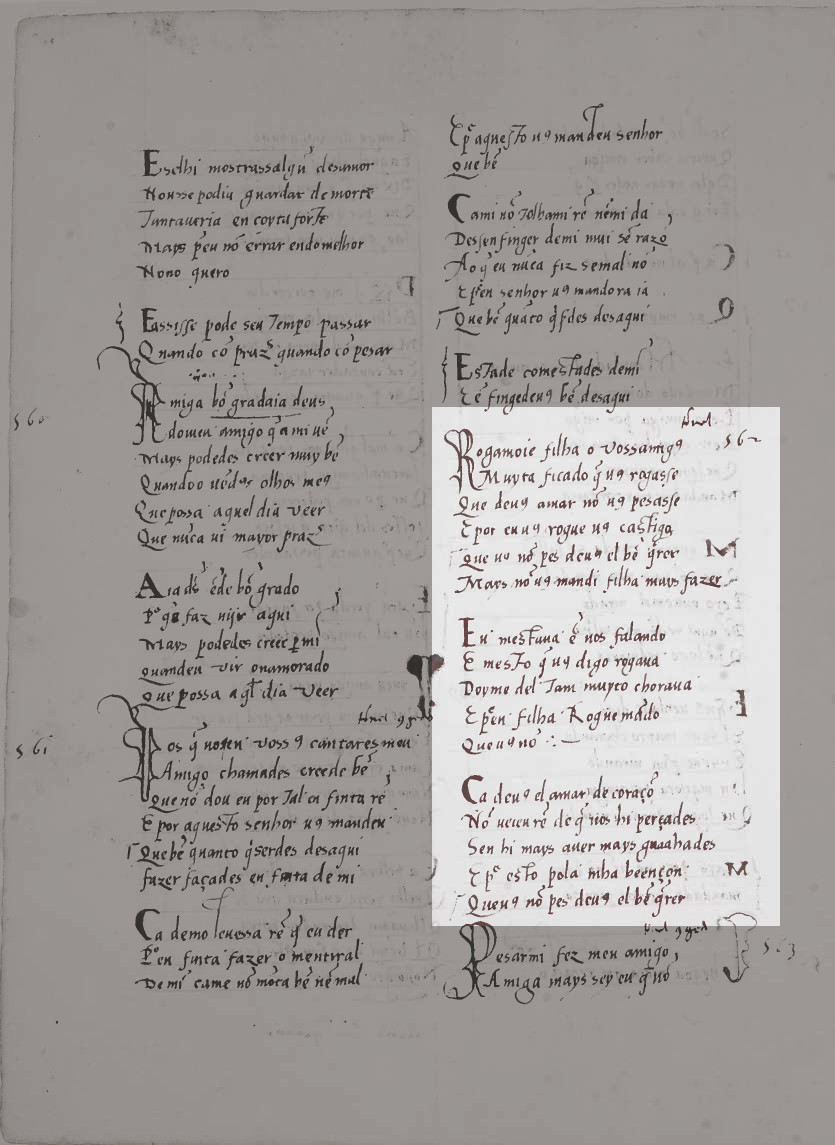 Eselhi mostrassalgũ desamor
Nonsse podia guardar de morte
Tantaveria en coyta forte
Mays peu nõ errar endomelhor
Nono quero
Eassisse pode seu tempo passar
Quando cõ praz quando cõ pesar
560
Amiga bõ gradaia deus
Domeu amigo q̃ a mi uẽ
Mays podedes creer muy bẽ
Quando o uẽdos olhos meꝯ
Que possa aquel dia veer
Que nũca ui mayor praz
Aiad's ẽde bõ grado
faz uijr aqui
Mays podedes creer p̱ mi
quandeu vir onamorado
Que possa a q̃l dia veer
561
Vos q̃ voss ꝯ cantares meu
Amigo chamades creede bẽ
Que nõ dou eu por tal en finta rẽ
E por aquesto senhor uꝯ mandeu
Que bẽ quanto q̃serdes desaqui
fazer façades en finta de mi
Ca demo leuessa rẽ q̃ eu der
Por en finta fazer o mentiral
De mi came nõ mõta bẽ nẽ mal
E por aquesto uꝯ mandeu senhor
Que bẽ
Cami nõ tolhami rẽ nẽmi da
Dessenfinger demi mui sẽ razõ
Ao q̃ eu nũca fiz se mal nõ
E pen senhor uꝯ mandora ia
Que bẽ quãto q̃sdes desaqui
Estade comestades demi
E ẽfingedeuꝯ bẽ desaqui
562
Rogamoie filha o vossamigꝯ
Muyta ficado q̃ uꝯ rogasse
Que deuꝯ amar nõ uꝯ pesasse
E por en uꝯ rogue uꝯ castigo
Que uꝯ nõ pes deuꝯ el bẽ q̃rer
M
Mays nõ uꝯ mandi filha mays fazer
Eu mestaua ẽ uos falando
E mesto q̃ uꝯ digo rogaua
Doyme del tam muyto choraua
E pen filha Rogue mãdo
E
Que uꝯ nõ
Ca deuꝯ el amar de coraçõ
Nõ ueieu rẽ de q̃ uos hi perçades
Sen hi mays auer mays guaahades
E pr esto pola mha beençon
M
Que uꝯ nõ pes deuꝯ el bẽ q̃rer
563
Pesarmi fez meu amigo
Amiga mays sey eu q̃ nõ